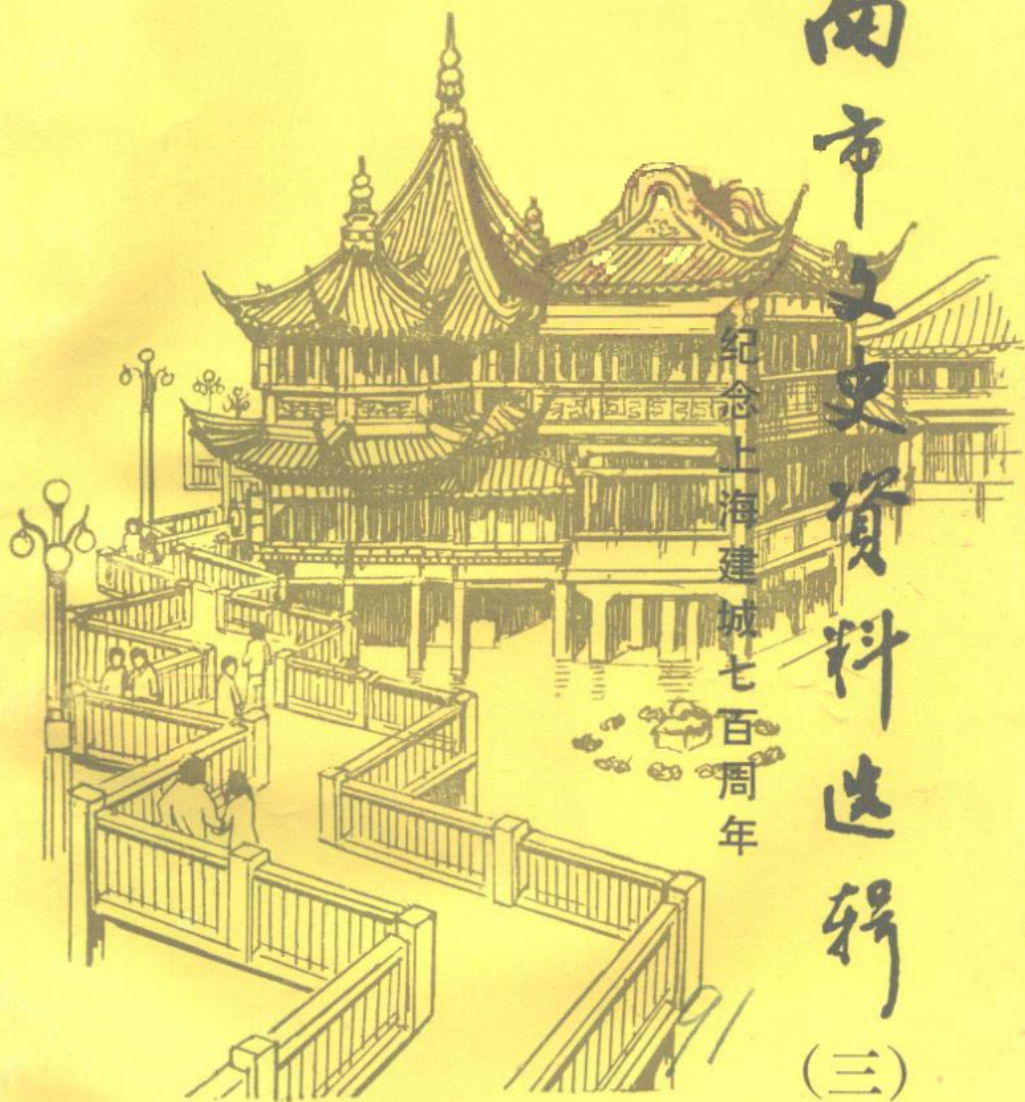 南市文史資料选辑
（三）
纪念上海建城七百周年